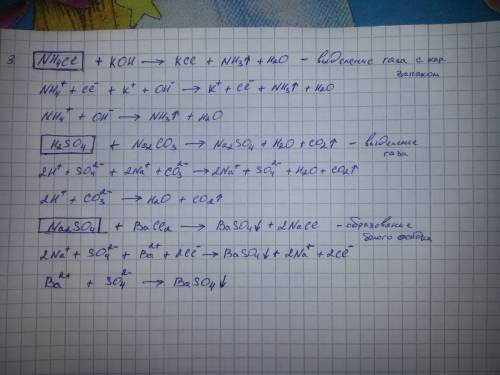 3. NH₄Cl + KOH → KCl + NH₃↑ + H₂O – выделение газа с хар. запахом
NH₄⁺ + Cl⁻ + K⁺ + OH⁻ → K⁺ + Cl⁻ + NH₃↑ + H₂O
NH₄⁺ + OH⁻ → NH₃↑ + H₂O
H₂SO₄ + Na₂CO₃ → Na₂SO₄ + H₂O + CO₂↑ – выделение газа
2H⁺ + SO₄²⁻ + 2Na⁺ + CO₃²⁻ → 2Na⁺ + SO₄²⁻ + H₂O + CO₂↑
2H⁺ + CO₃²⁻ → H₂O + CO₂↑
Na₂SO₄ + BaCl₂ → BaSO₄↓ + 2NaCl – образование белого осадка
2Na⁺ + SO₄²⁻ + Ba²⁺ + 2Cl⁻ → BaSO₄↓ + 2Na⁺ + 2Cl⁻
Ba²⁺ + SO₄²⁻ → BaSO₄↓